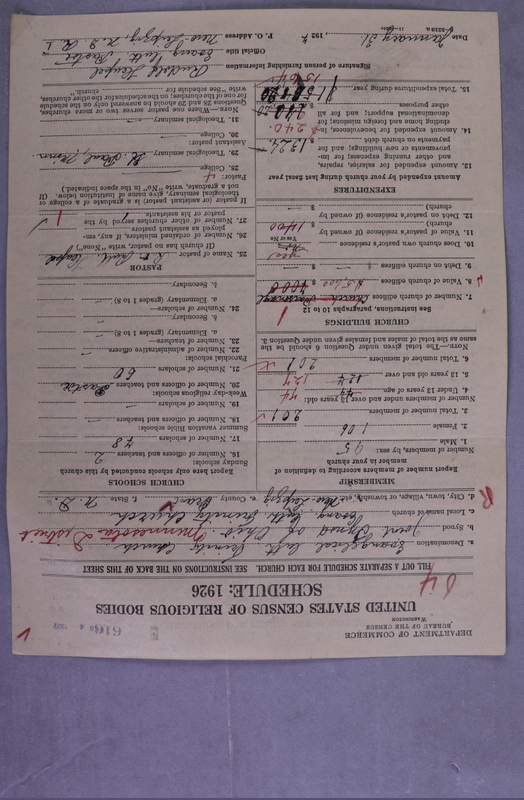 DEPARTMENT OF COMMERCE
BUREAU OF THE CENSUS
WASHINGTON
UNITED STATES CENSUS OF RELIGIOUS BODIES
SCHEDULE: 1926
FILL OUT A SEPARATE SCHEDULE FOR EACH CHURCH. SEE INSTRUCTIONS ON THE BACK OF THIS SHEET
a. Denomination Evangelical Luth. Trinity Church
b. Synod Joint Synod of Ohio Minnesota District
c. Local name of church Evang. Luth. Trinity Church
d. City, town, village, or township New Leipzig e. County Grant f. State N. D.
MEMBERSHIP
Report number of members according to definition of member in your church
Number of members, by sex:
1. Male 95
2. Female 106
3. Total number of members 201
Number of members under and over 13 years old:
4. Under 13 years of age 74
5. 13 years old and over 127
6. Total number of members 201
NOTE.—The total given under Question 6 should be the
same as the total of males and females given under Question 3.
CHURCH BUILDINGS
See instructions, paragraphs 10 to 12
7. Number of church edifices 1
8. Value of church edifices $
9. Debt on church edifices $
10. Does church own pastor's residence yes
Yes or No
11. Value of pastor's residence (if owned by
church) $ 1400
12. Debt on pastor's residence (if owned by
church) $
EXPENDITURES
Amount expended by your church during last fiscal year
13. Amount expended for salaries, repairs,
and other running expenses; for im-
provements or new buildings; and for
payments on church debt $ 1324
14. Amount expended for benevolences, in-
cluding home and foreign missions; for
denominational support; and for all
other purposes 240
15. Total expenditures during year 1564
CHURCH SCHOOLS
Report here only schools conducted by this church
Sunday schools:
16. Number of officers and teachers 2
17. Number of scholars 48
Summer vacation Bible schools:
18. Number of officers and teachers
19. Number of scholars
Week-day religious schools:
20. Number of officers and teachers Pastor
21. Number of scholars 60
Parochial schools:
22. Number of administrative officers
23. Number of teachers—
a. Elementary (grades 1 to 8)
b. Secondary
24. Number of scholars—
a. Elementary (grades 1 to 8)
b. Secondary
PASTOR
25. Name of pastor
(If church has no pastor, write "None")
26. Number of ordained ministers, if any, em-
ployed as assistant pastors
27. Number of other churches served by the
pastor or his assistants
If pastor (or assistant pastor) is a graduate of a college or
theological seminary, give name of institution below. (If
not a graduate, write "No" in the space indicated.)
Pastor:
28. College
29. Theological seminary St. Paul, Minn.
Assistant pastor:
30. College
31. Theological seminary
NOTE.—Where one pastor serves two or more churches,
Questions 28 and 29 should be answered only on the schedule
for one of the churches; on the schedules for the other churches,
write "See schedule for church."
Signature of person furnishing information Rudolf Hempel
Official title Evang. Luth. Pastor
P. O. Address New Leipzig, N. D. R. 1
Date January 31, 1927